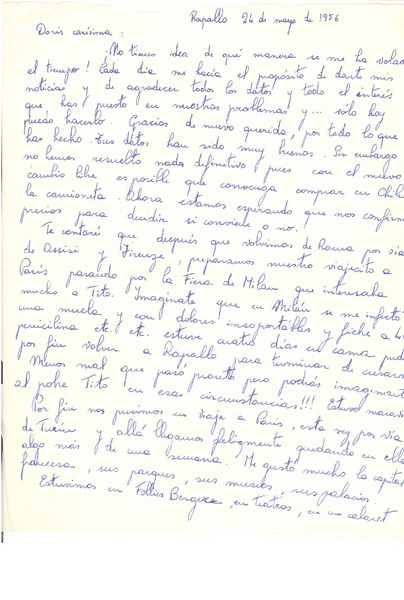 Rapallo 24 de mayo de 1956
Doris carísima :
¡No tienes idea de qué manera se me ha volado
el tiempo! Cada día me hacía el propósito de darte mis
noticias y de agradecer todos los datos y todo el interés
que has puesto en nuestros problemas y... sólo hoy
puedo hacerlo. Gracias de nuevo querida, por todo lo que
has hecho. Tus datos han sido muy buenos. Sin embargo
no hemos resuelto nada definitivo pues con el nuevo
cambio libre es posible que convenga comprar en Chile
la camioneta. Ahora estamos esperando que nos confirmen
precios para decidir si conviene o no.
Te contaré que después que volvimos de Roma por vía
de Assisi y Firenze, preparamos nuestro viajecito a
París pasando por la Fiera de Milán que interesaba
mucho a Tito. Imagínate que en Milán se me infectó
una muela y con dolores insoportables y fiebre a 40
penicilina etc. etc. estuve cuatro días en cama pude
por fin volver a Rapallo para terminar de curarme
Menos mal que pasó pronto pero podrás imaginarte
al pobre Tito en esas circunstancias!!! Estuvo maravi
Por fin nos pusimos en viaje a París, esta vez por vía
de Turín y allá llegamos felizmente quedando en ella
algo más de una semana. Me gustó mucho la capital
francesa, sus parques, sus museos, sus palacios.
Estuvimos en Follies Bergere, en teatros, en un cabaret